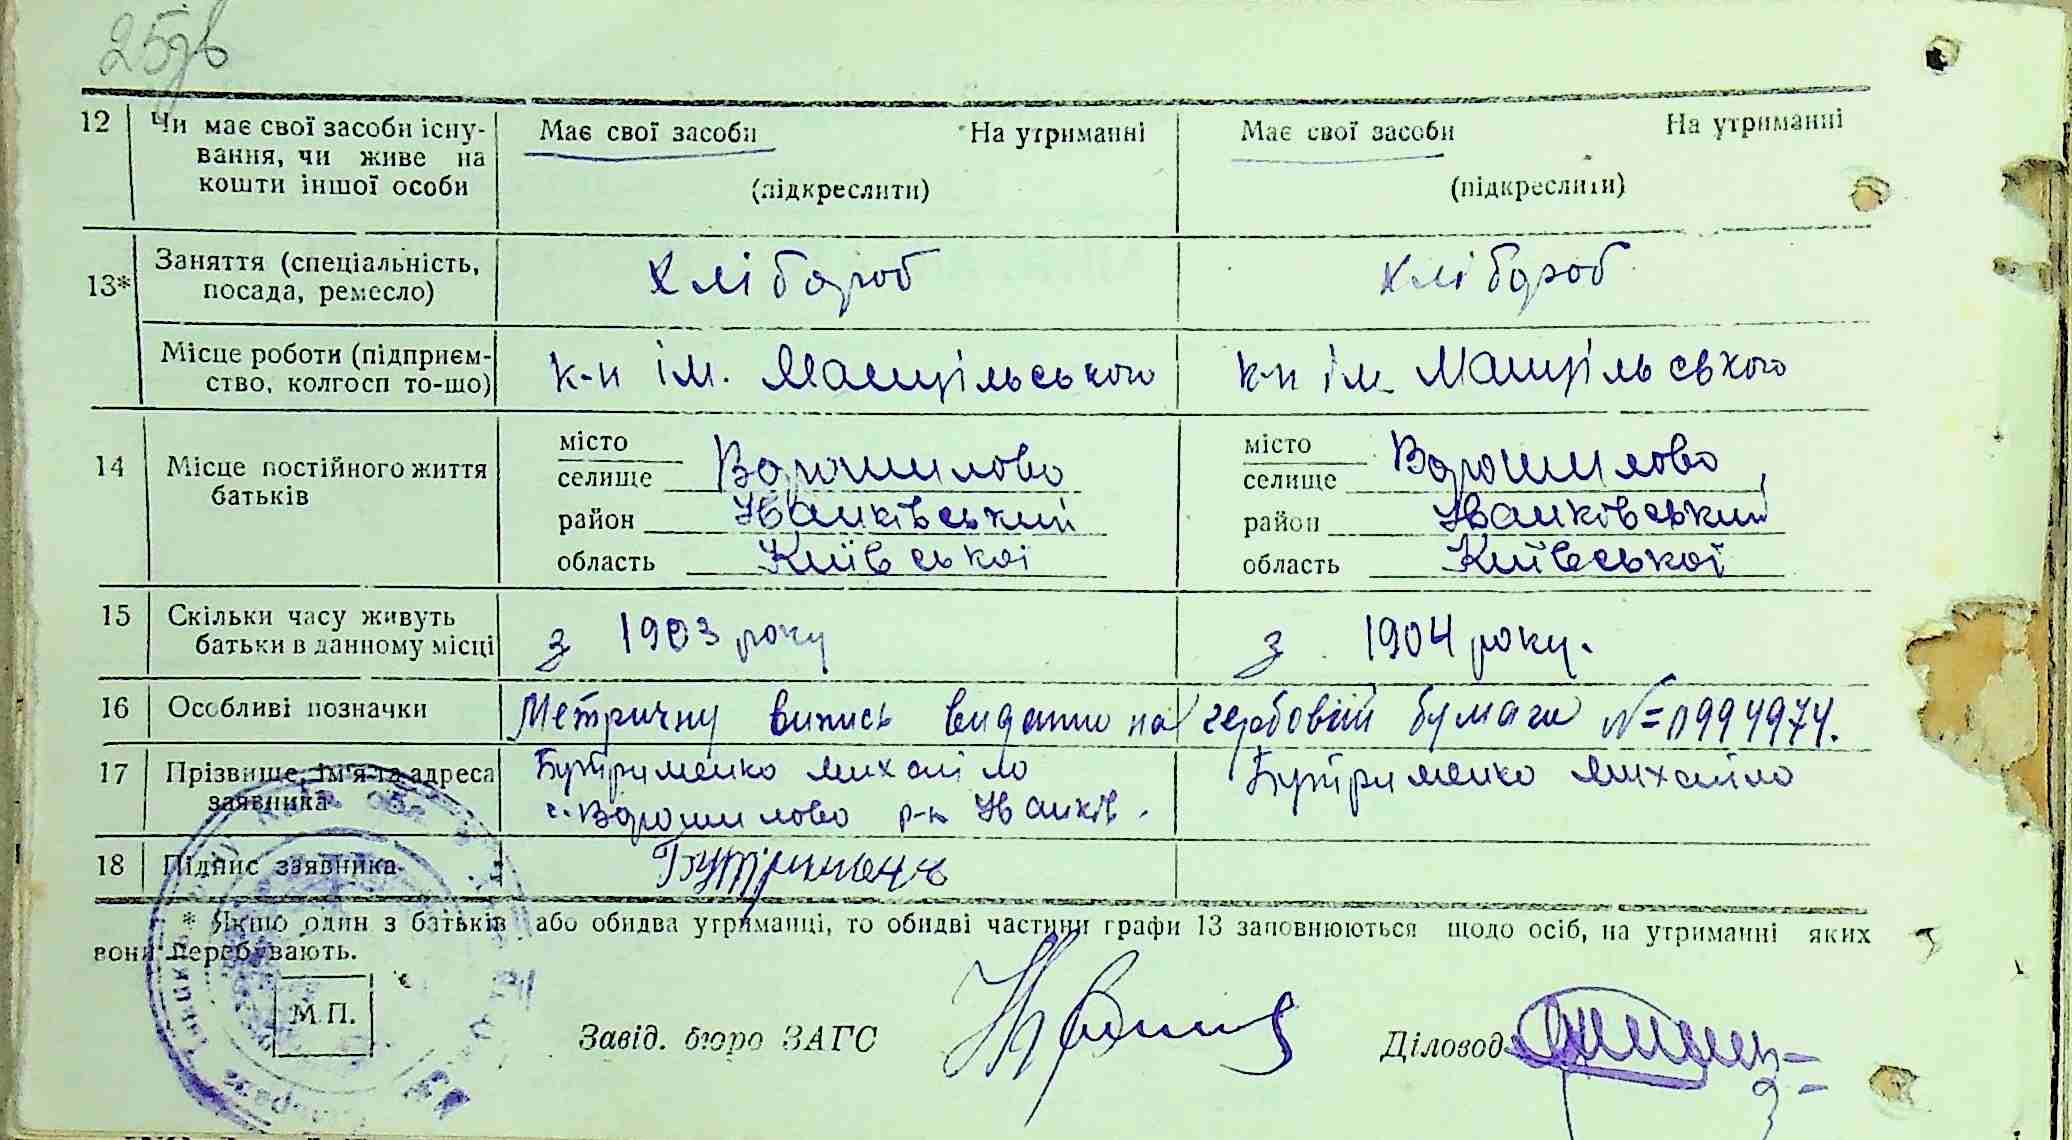 25зв
12 Чи має свої засоби існу- Має свої засоби На утриманні Має свої засоби На утриманні
вання, чи живе на
кошти іншої особи (підкреслити) (підкреслити)
13* Заняття (спеціальність, хлібороб хлібороб
посада, ремесло)
Місце роботи (підприєм- к-п ім. к-п ім.
ство, колгосп то-що)
місто місто
14 Місце постійного життя селище Ворошилово селище Ворошилово
батьків район Іванківський район Іванковський
область Київської область Київської
15 Скільки часу живуть з 1903 року з 1904 року.
батьки в данному місці
16 Особливі позначки Метричну випись видано на гербовій бумаги №=0994974.
17 Прізвище, ім'я та адреса Бутрименко Михайло Бутрименко Михайло
заявника с. Ворошилово р-н Іванків.
18 Підпис заявника Бутрименко
* Якщо один з батьків або обидва утриманці, то обидві частини графи 13 заповнюються щодо осіб, на утриманні яких
вони перебувають.
М.П.
Завід. бюро ЗАГС Діловод